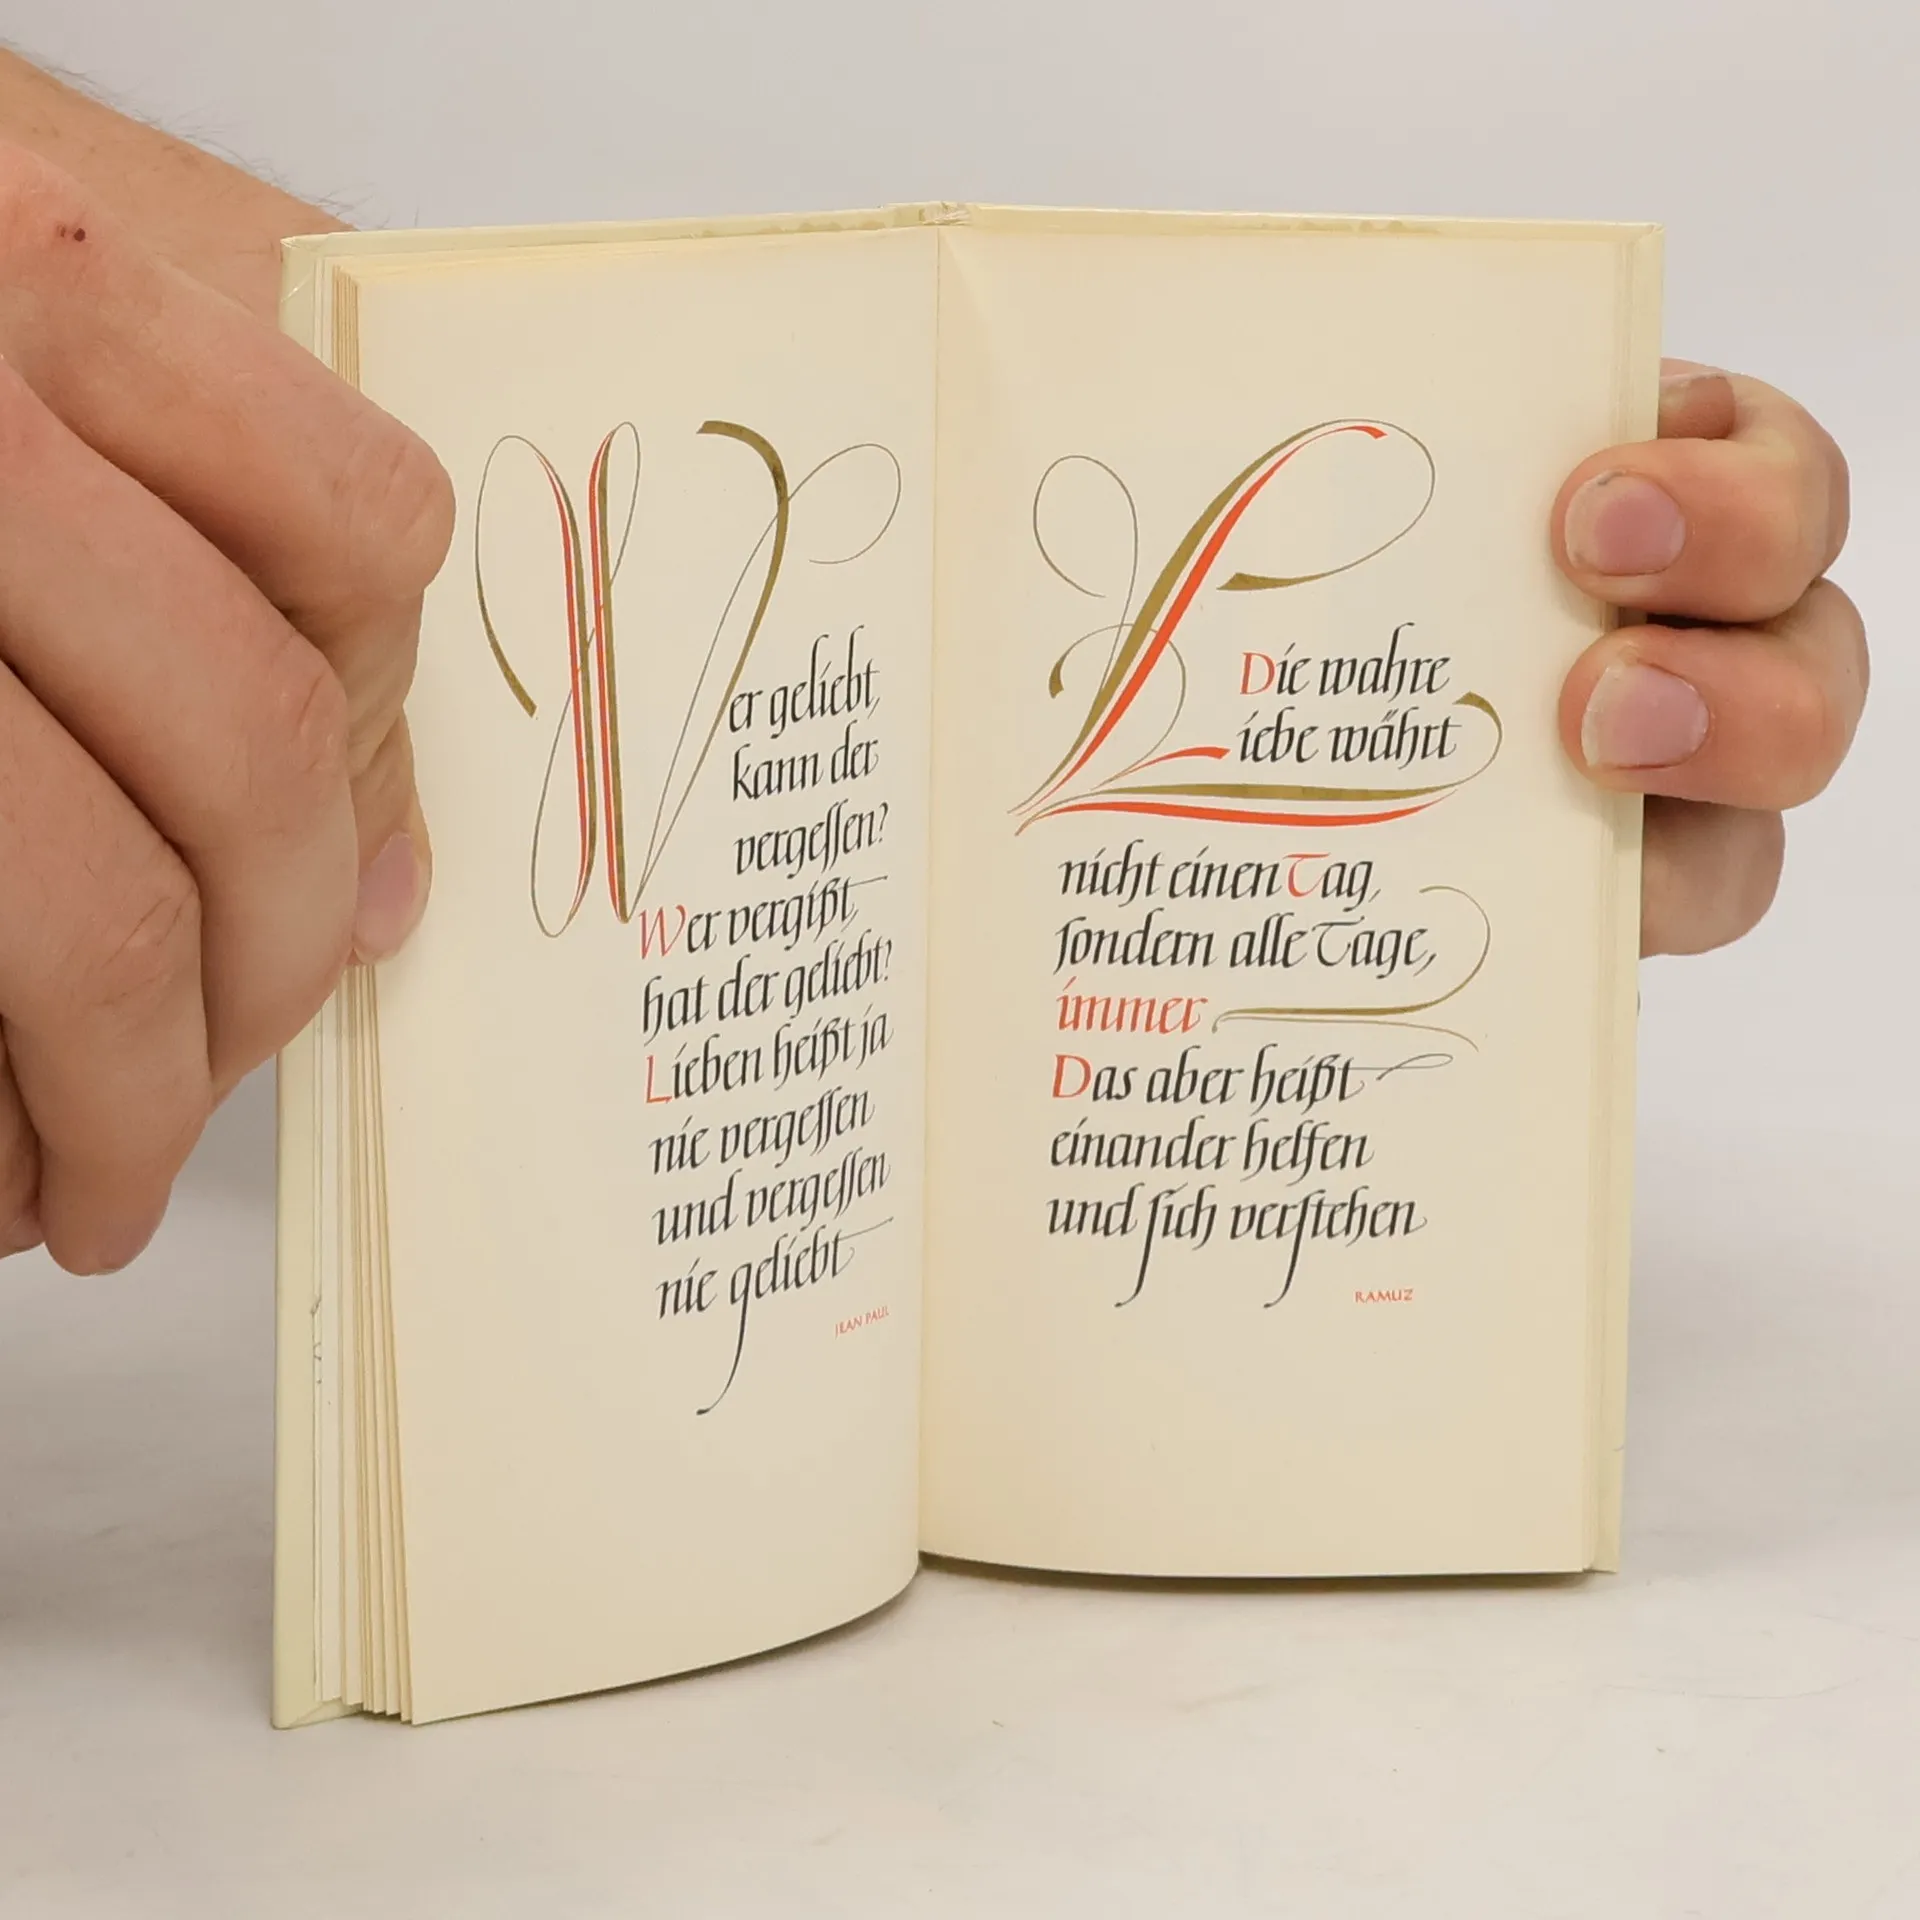 Wer geliebt,
kann der
vergessen?
Wer vergißt,
hat der geliebt?
Lieben heißt ja
nie vergessen
und vergessen
nie geliebt
JEAN PAUL
Die wahre
Liebe währt
nicht einen Tag,
sondern alle Tage,
immer
Das aber heißt
einander helfen
und sich verstehen
RAMUZ